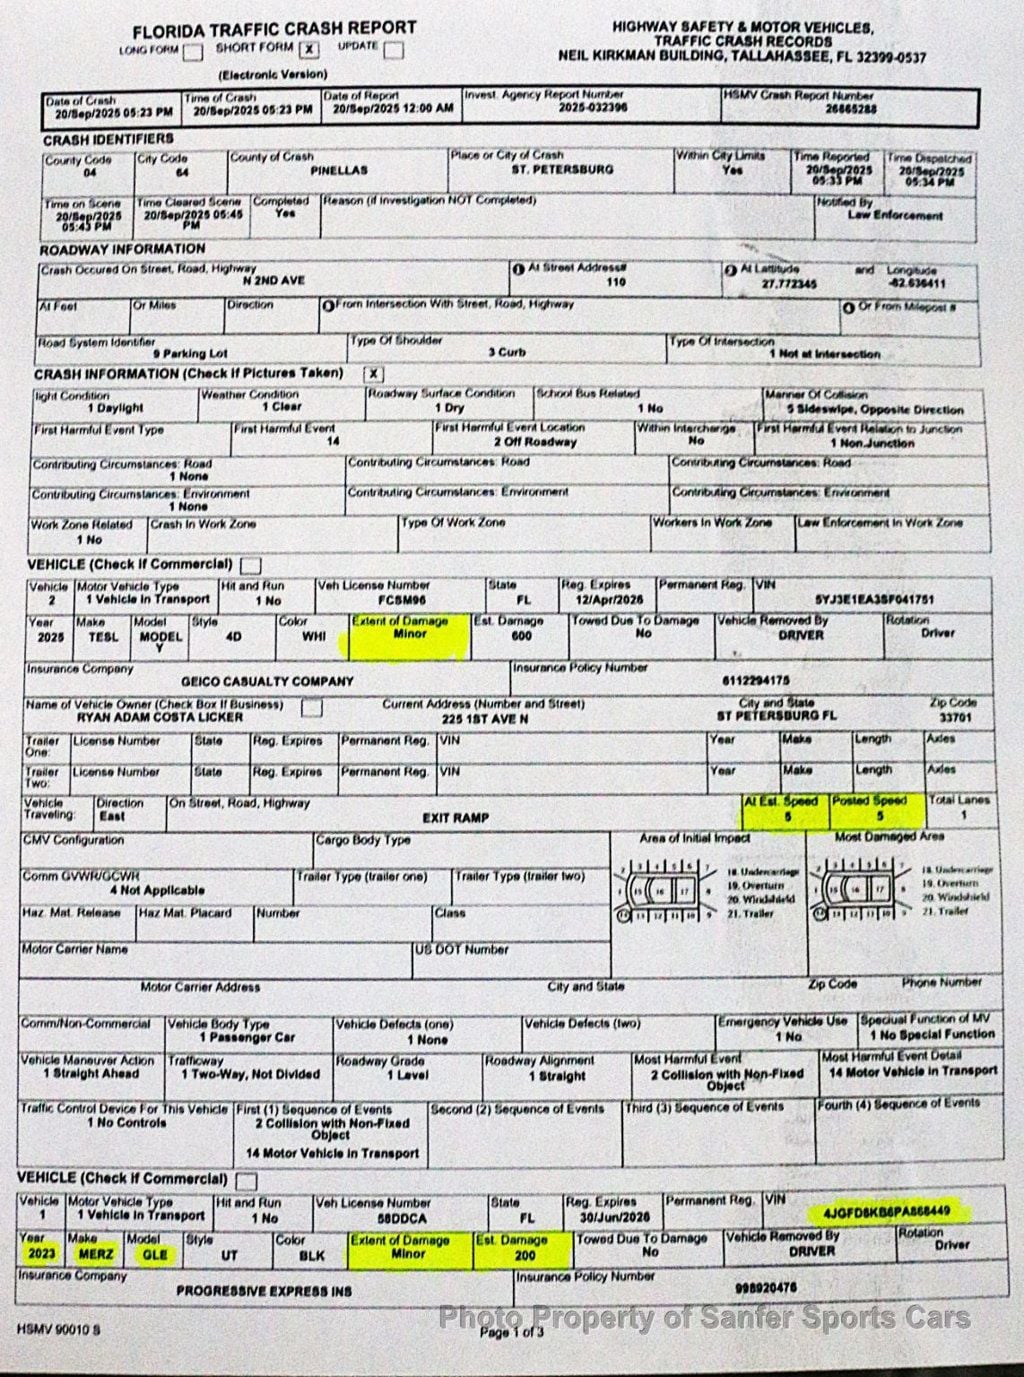 FLORIDA TRAFFIC CRASH REPORT
LONG FORM SHORT FORM X UPDATE
(Electronic Version)
HIGHWAY SAFETY & MOTOR VEHICLES,
TRAFFIC CRASH RECORDS
NEIL KIRKMAN BUILDING, TALLAHASSEE, FL 32399-0537
Date of Crash Time of Crash Date of Report Invest. Agency Report Number HSMV Crash Report Number
20/Sep/2025 05:23 PM 20/Sep/2025 05:23 PM 20/Sep/2025 12:00 AM 2025-032396 26865288
CRASH IDENTIFIERS
County Code City Code County of Crash Place or City of Crash Within City Limits Time Reported Time Dispatched
04 64 PINELLAS ST. PETERSBURG Yes 20/Sep/2025 05:33 PM 20/Sep/2025 05:34 PM
Time on Scene Time Cleared Scene Completed Reason (if Investigation NOT Completed) Notified By
20/Sep/2025 05:43 PM 20/Sep/2025 05:45 PM Yes Law Enforcement
ROADWAY INFORMATION
Crash Occured On Street, Road, Highway 1 At Street Address# 2 At Lattitude and Longitude
N 2ND AVE 110 27.772345 -82.636411
At Feet Or Miles Direction 3 From Intersection With Street, Road, Highway 4 Or From Milepost #
Road System Identifier Type Of Shoulder Type Of Intersection
9 Parking Lot 3 Curb 1 Not at Intersection
CRASH INFORMATION (Check if Pictures Taken) X
light Condition Weather Condition Roadway Surface Condition School Bus Related Manner Of Collision
1 Daylight 1 Clear 1 Dry 1 No 5 Sideswipe, Opposite Direction
First Harmful Event Type First Harmful Event First Harmful Event Location Within Interchange First Harmful Event Relation to Junction
14 2 Off Roadway No 1 Non.Junction
Contributing Circumstances: Road Contributing Circumstances: Road Contributing Circumstances: Road
1 None
Contributing Circumstances: Environment Contributing Circumstances: Environment Contributing Circumstances: Environment
1 None
Work Zone Related Crash In Work Zone Type Of Work Zone Workers In Work Zone Law Enforcement In Work Zone
1 No
VEHICLE (Check if Commercial)
Vehicle Motor Vehicle Type Hit and Run Veh License Number State Reg. Expires Permanent Reg. VIN
2 1 Vehicle in Transport 1 No FCSM96 FL 12/Apr/2026 5YJ3E1EA3SF041751
Year Make Model Style Color Extent of Damage Est. Damage Towed Due To Damage Vehicle Removed By Rotation
2025 TESL MODEL Y 4D WHI Minor 600 No DRIVER Driver
Insurance Company Insurance Policy Number
GEICO CASUALTY COMPANY 6112294175
Name of Vehicle Owner (Check Box If Business) Current Address (Number and Street) City and State Zip Code
RYAN ADAM COSTA LICKER 225 1ST AVE N ST PETERSBURG FL 33701
Trailer One: License Number State Reg. Expires Permanent Reg. VIN Year Make Length Axles
Trailer Two: License Number State Reg. Expires Permanent Reg. VIN Year Make Length Axles
Vehicle Traveling: Direction On Street, Road, Highway At Est. Speed Posted Speed Total Lanes
East EXIT RAMP 5 5 1
CMV Configuration Cargo Body Type Area of Initial Impact Most Damaged Area
Comm GVWR/GCWR Trailer Type (trailer one) Trailer Type (trailer two)
4 Not Applicable
18. Undercarriage 18. Undercarriage
19. Overturn 19. Overturn
20. Windshield 20. Windshield
21. Trailer 21. Trailer
Haz. Mat. Release Haz. Mat. Placard Number Class
Motor Carrier Name US DOT Number
Motor Carrier Address City and State Zip Code Phone Number
Comm/Non-Commercial Vehicle Body Type Vehicle Defects (one) Vehicle Defects (two) Emergency Vehicle Use Speciual Function of MV
1 Passenger Car 1 None 1 No 1 No Special Function
Vehicle Maneuver Action Trafficway Roadway Grade Roadway Alignment Most Harmful Event Most Harmful Event Detail
1 Straight Ahead 1 Two-Way, Not Divided 1 Level 1 Straight 2 Collision with Non-Fixed Object 14 Motor Vehicle in Transport
Traffic Control Device For This Vehicle First (1) Sequence of Events Second (2) Sequence of Events Third (3) Sequence of Events Fourth (4) Sequence of Events
1 No Controls 2 Collision with Non-Fixed Object
14 Motor Vehicle in Transport
VEHICLE (Check if Commercial)
Vehicle Motor Vehicle Type Hit and Run Veh License Number State Reg. Expires Permanent Reg. VIN
1 1 Vehicle in Transport 1 No 58DDCA FL 30/Jun/2026 4JGFD8KB6PA868449
Year Make Model Style Color Extent of Damage Est. Damage Towed Due To Damage Vehicle Removed By Rotation
2023 MERZ GLE UT BLK Minor 200 No DRIVER Driver
Insurance Company Insurance Policy Number
PROGRESSIVE EXPRESS INS 998920476
Photo Property of Sanfer Sports Cars
HSMV 90010 S Page 1 of 3